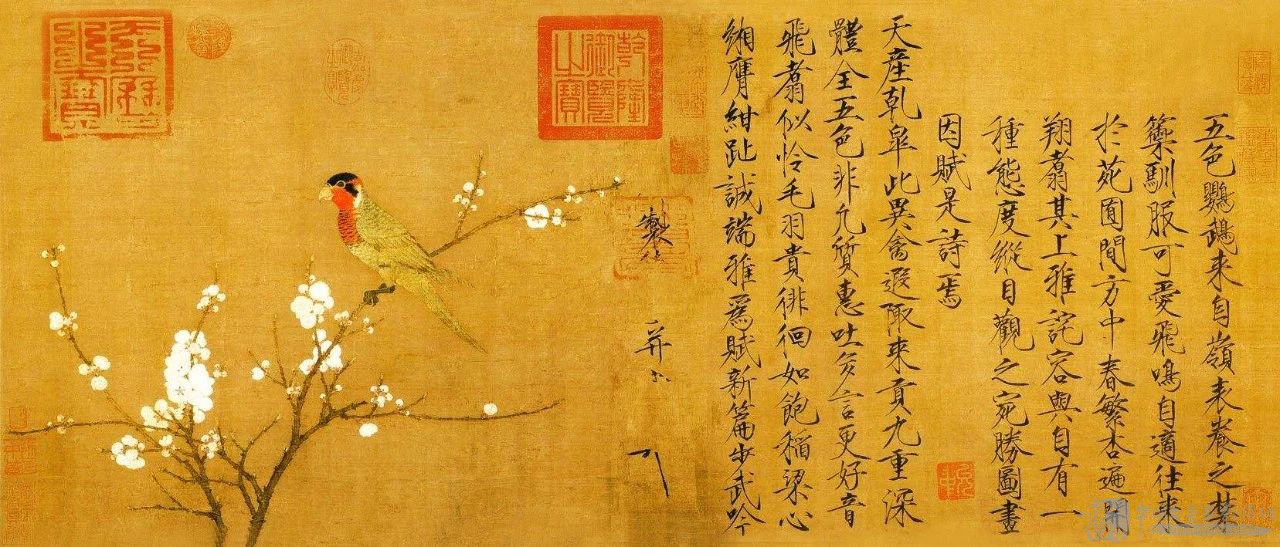 五色鸚鵡來自嶺表養之禁
籞馴服可愛飛鳴自適往來
扵苑囿間方中春繁杏遍開
翔翥其上雅詫容與自有一
種態度縱目觀之宛勝圖畫
因賦是詩焉
天產乹皐此異禽遐陬來貢九重深
體全五色非凡質惠吐多言更好音
飛翥似憐毛羽貴徘徊如飽稻粱心
緗膺紺趾誠端雅爲賦新篇步武吟
製 并
乾隆御覽之寶